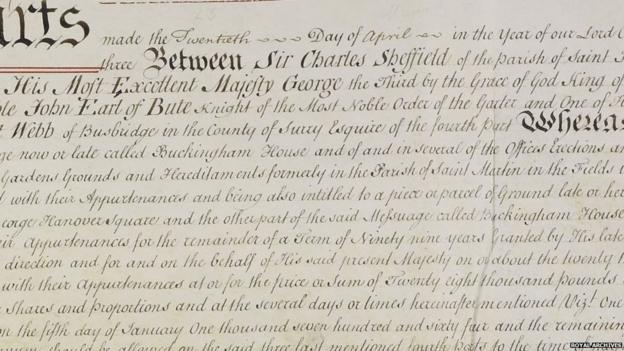 arts made the Twentieth Day of April in the Year of our Lord
three Between Sir Charles Sheffield of the Parish of Saint
His Most Excellent Majesty George the Third by the Grace of God King of
ble John Earl of Bute Knight of the Most Noble Order of the Garter and One of
Webb of Busbridge in the County of Surry Esquire of the fourth Part Whereas
ge now or late called Buckingham House and of and in several of the Offices Erections and
Gardens Grounds and Hereditaments formerly in the Parish of Saint Martin in the Fields
with their Appurtenances and being also intitled to a piece or parcel of Ground late or her
eorge Hanover Square and the other part of the said Messuage called Buckingham House
eir Appurtenances for the remainder of a Term of Ninety nine years granted by His late
direction and for and on the behalf of His said present Majesty on or about the twenty
with their Appurtenances at or for the price or Sum of Twenty eight thousand pounds
Shares and Proportions and at the several days or times hereinafter mentioned Vizt. One
on the fifth day of January One thousand seven hundred and sixty four and the remaining
should be allowed on the said three last mentioned fourth parts to the time
ROYAL ARCHIVES